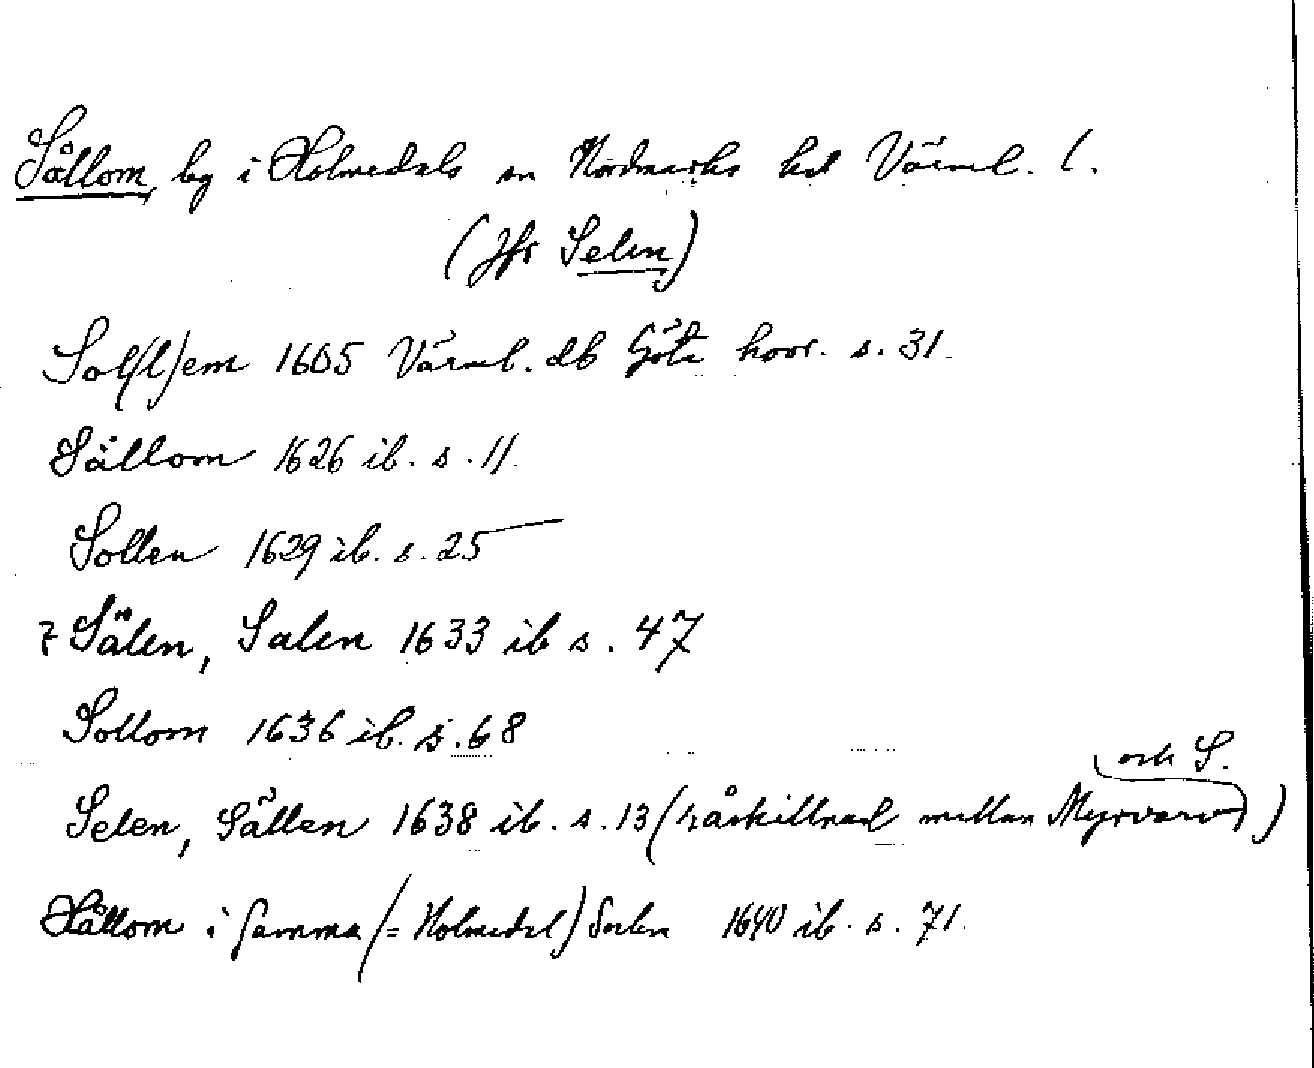 Sållom, by i Holmedals sn Nordmarks hd Värml. l.
(Jfr Selen)
Sol(l)em 1605 Värml. db Göta hovr. s. 31.
Sällom 1626 ib. s. 11.
Sollen 1629 ib. s. 25
Sälen, Salen 1633 ib s. 47
Sollom 1636 ib. s. 68
och S.
Selen, Sällen 1638 ib. s. 13 (råskillnad mellan Myrvarv)
Hållom i samma (= Holmedal) Sochn 1640 ib. s. 71.